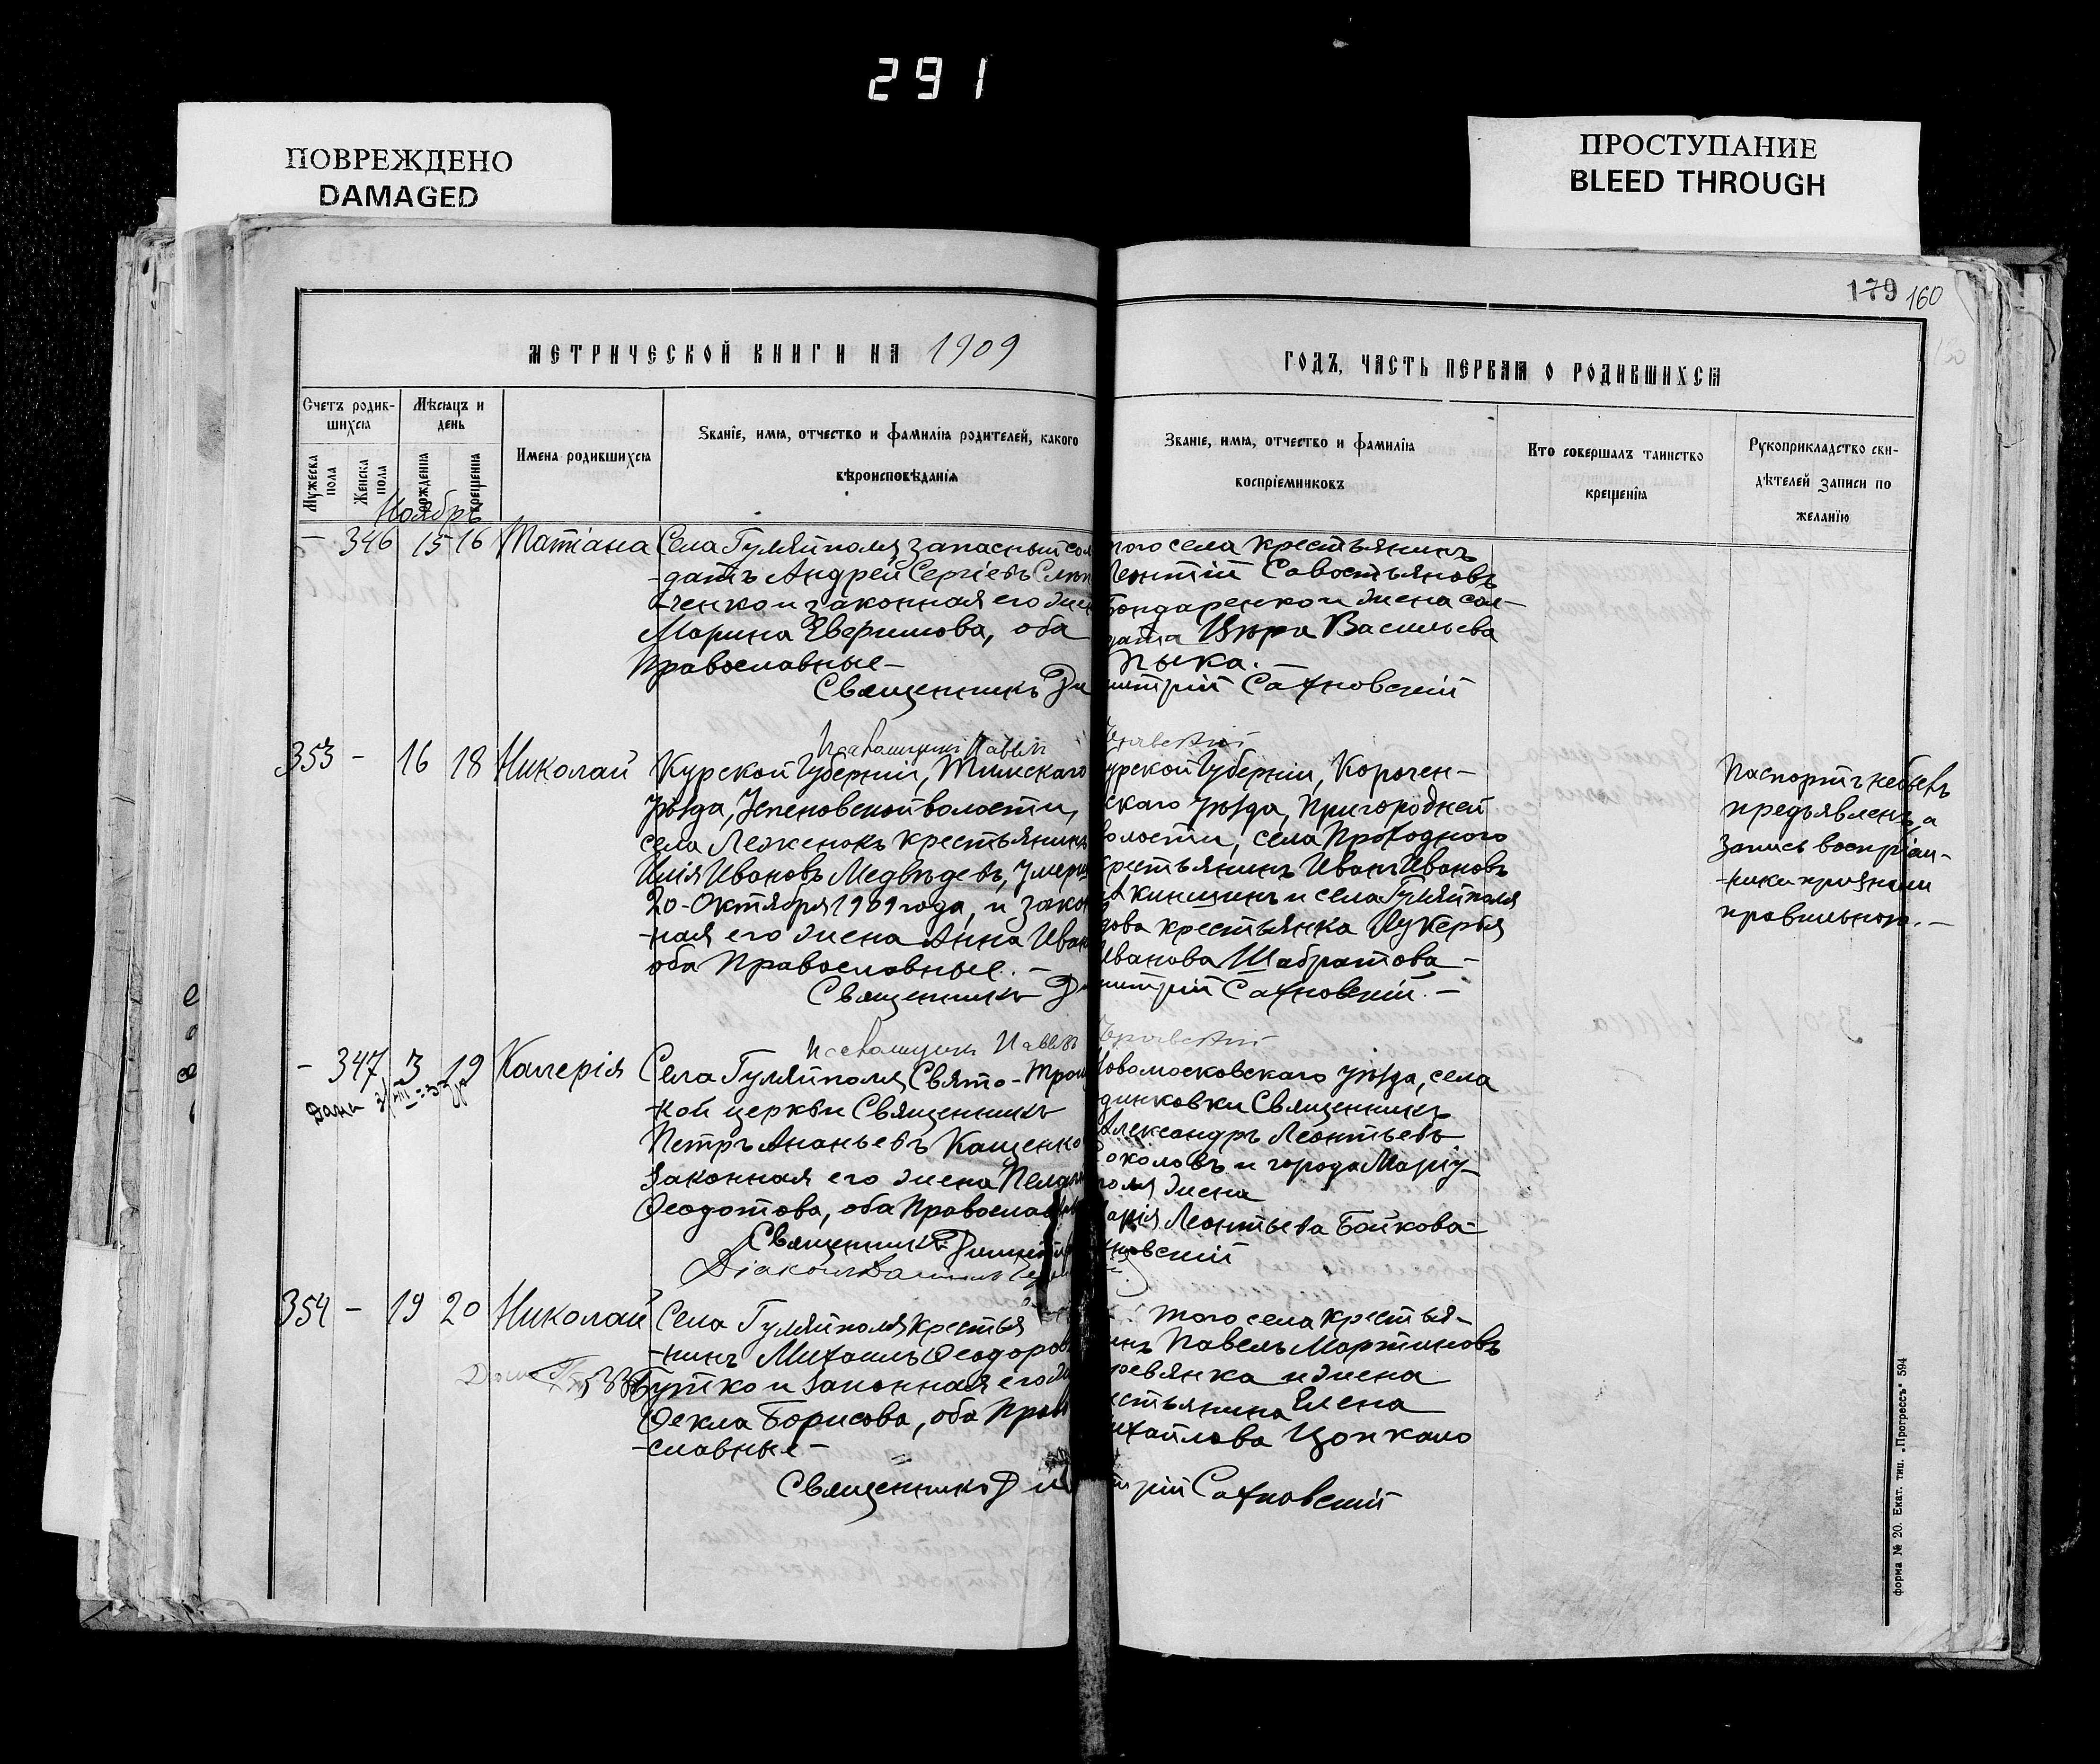 291
ПОВРЕЖДЕНО
DAMAGED
ПРОСТУПАНИЕ
BLEED THROUGH
179 160
МЕТРИЧЕСКОЙ КНИГИ НА 1909
ГОДЪ, ЧАСТЬ ПЕРВАЯ О РОДИВШИХСЯ
Счетъ родив-
шихся
Мѣсяцъ и
день
Мужеска
пола
Женска
пола
рожденія
крещенія
Имена родившихся
Званіе, имя, отчество и фамилія родителей, какого
вѣроисповѣданія
Званіе, имя, отчество и фамилія
воспріемниковъ
Кто совершалъ таинство
крещенія
Рукоприкладство сви-
дѣтелей записи по
желанію
Ноябрь
— 346 15 16 Татіана
Села Гуляйполя запасный сол
-датъ Андрей Сергіевъ
-ченко и законная его жен
Марина Евфимова, оба
Православные —
Священникъ Ди
того села крестьянинъ
Леонтій Савостьяновъ
Бондаренко и жена сол-
дата Васильева
Лыка. —
митрій Сахновскій
353 — 16 18 Николай
Псаломщикъ Павелъ
Курской Губерніи, Тимскаго
Уѣзда, Успеновской волости,
села Леженокъ крестьянинъ
Илія Ивановъ Медвѣдевъ, умерш
20-Октября 1909 года, и закон
-ная его жена Анна Иван
оба Православные. —
Священникъ Ди
урской Губерніи, Корочен-
скаго уѣзда, Пригородней
волости, села Проходного
крестьянинъ Иванъ Ивановъ
Акиншинъ и села Гуляйполя
дова крестьянка Лукерья
Иванова Шабратова —
митрій Сахновскій. —
Паспортъ не былъ
предъявленъ, а
запись воспріем-
-ники признали
правильною. —
— 347 3 19 Калерія
Дана
Псаломщикъ Павелъ
Села Гуляйполя Свято-Трои
-кой церкви Священникъ
Петръ Ананьевъ Кащенко
законная его жена Пелаг
Ѳеодотова, оба Православн
Священникъ Димитрі
Діаконъ
Новомосковскаго уѣзда, села
динковки Священникъ
Александръ Леонтьевъ
Соколовъ и города Маріу-
поля жена
арія Леонтьева Бойкова —
хновскій
354 — 19 20 Николай
Села Гуляйполя крестья
-нинъ Михаилъ Ѳеодоров
Бутко и законная его ж
Ѳекла Борисова, оба Прав
-славные —
Священникъ Ди
того села крестья-
инъ Павелъ Мартиновъ
ревянка и жена
естьянина Елена
ихайлова Цопкало
итрій Сахновскій
форма № 20. Екат. тип. „Прогрессъ“ 594